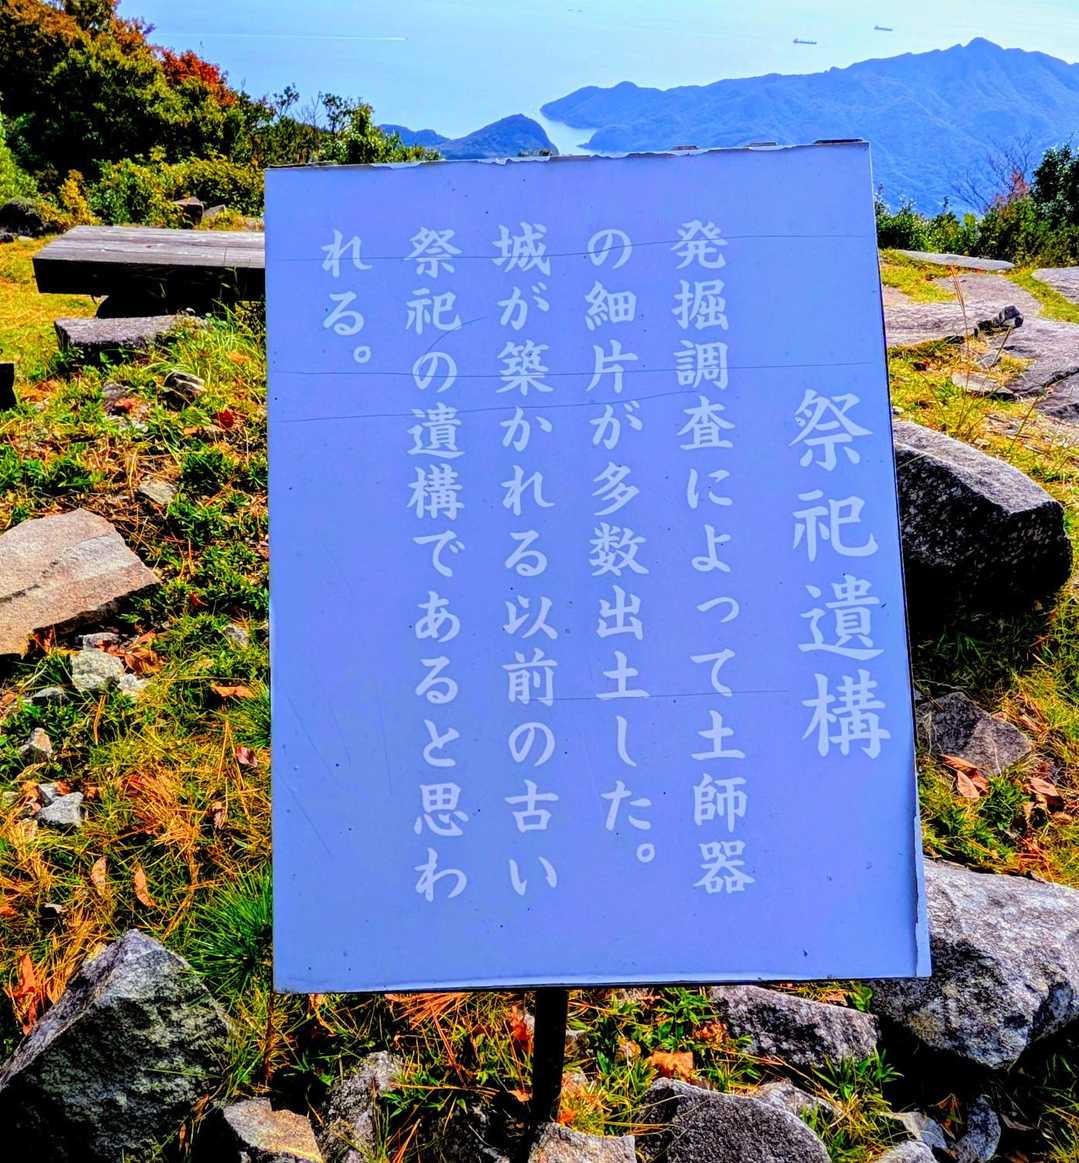 祭祀遺構
発掘調査によって土師器
の細片が多数出土した。
城が築かれる以前の古い
祭祀の遺構であると思わ
れる。